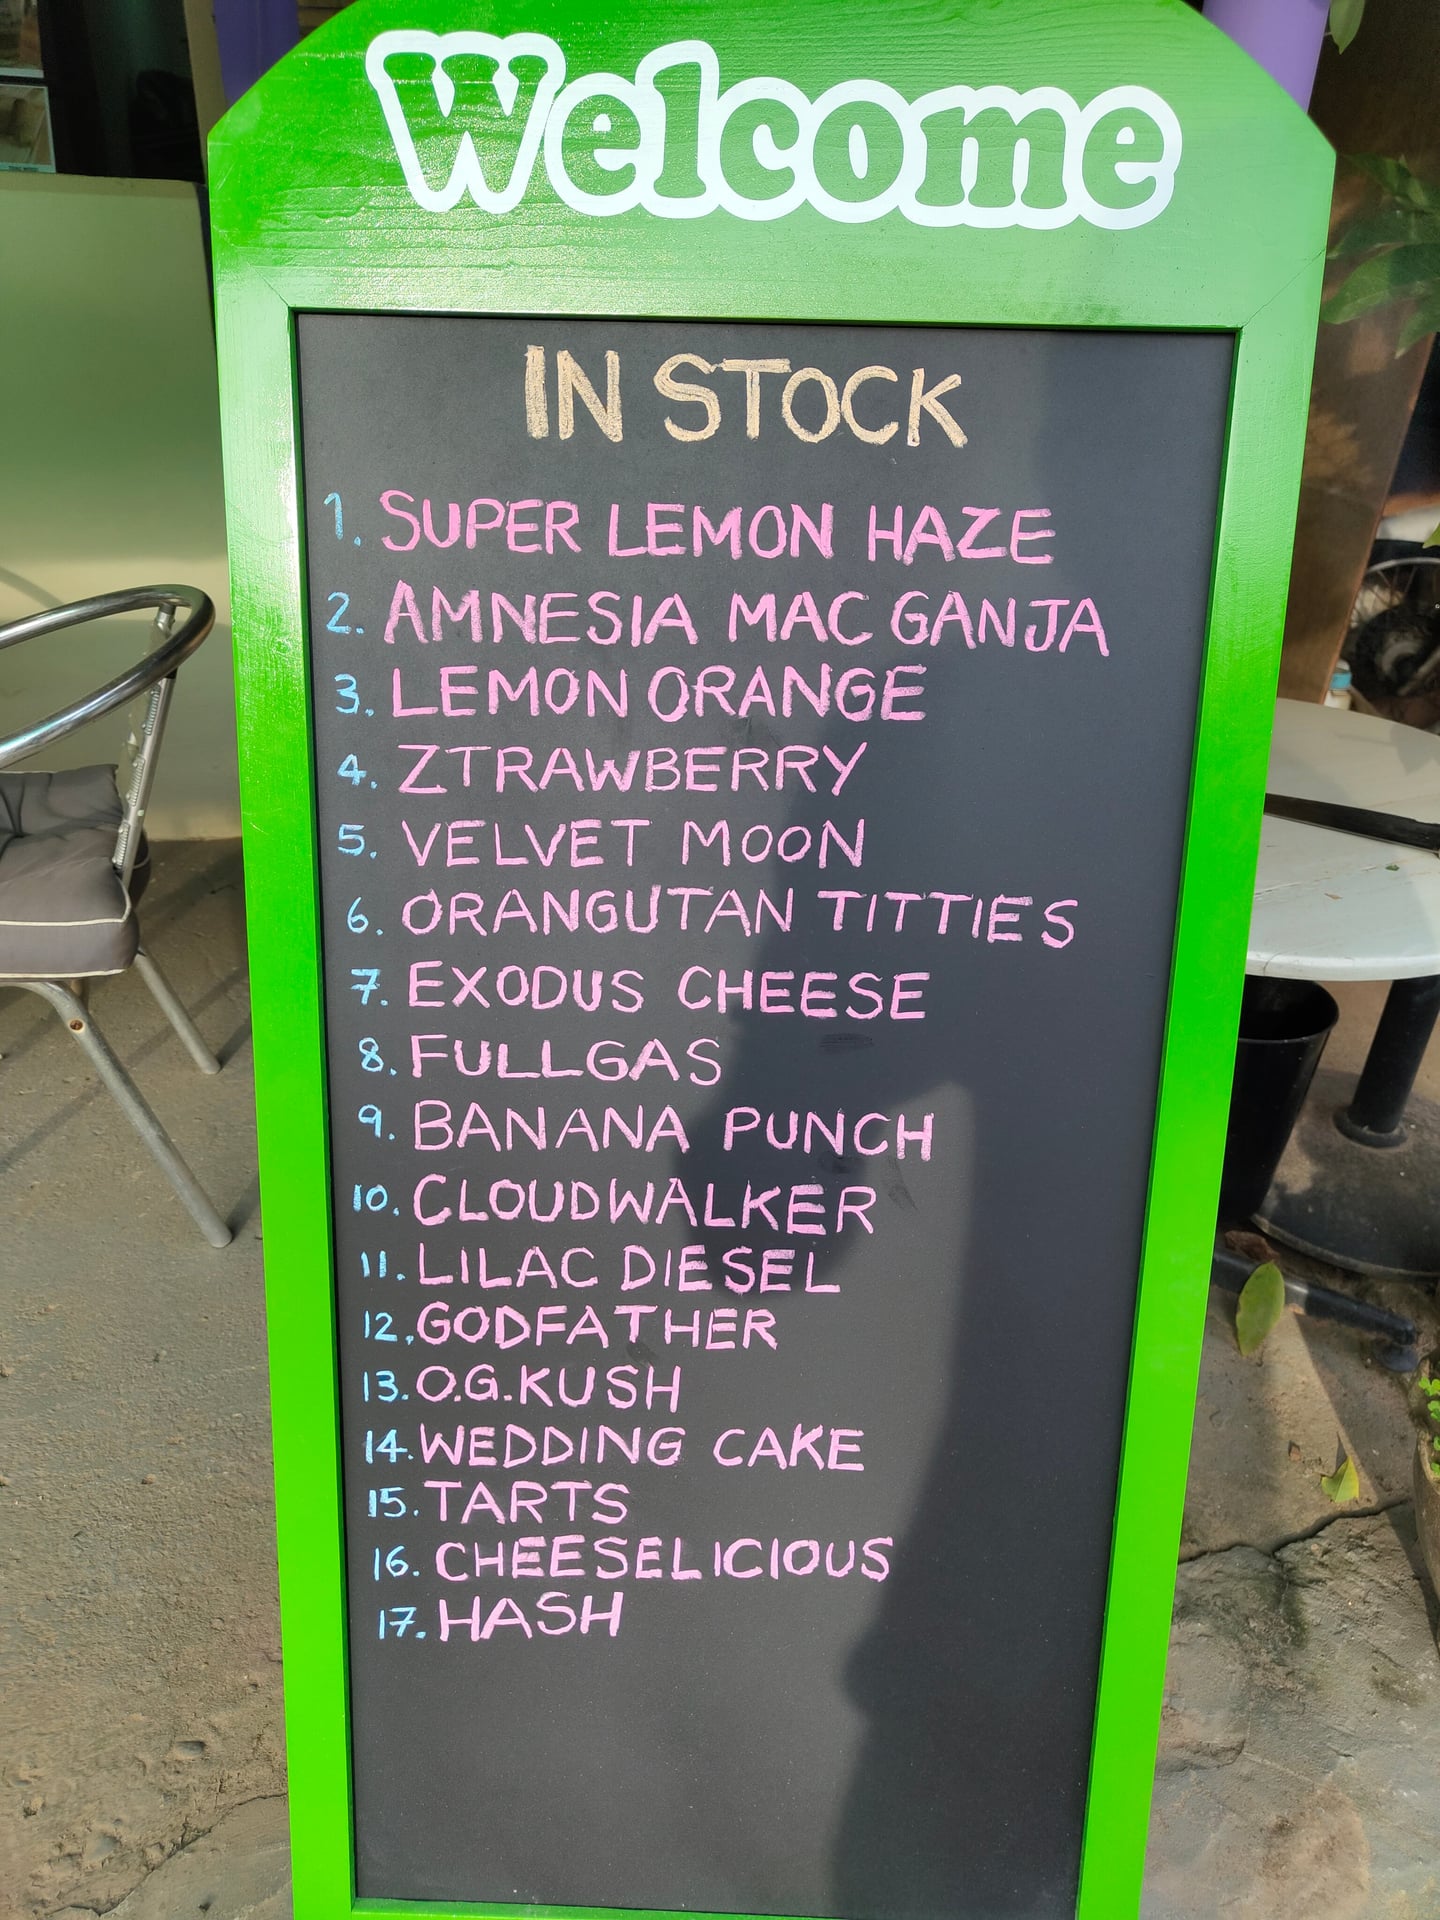 Welcome
IN STOCK
1. SUPER LEMON HAZE
2. AMNESIA MAC GANJA
3. LEMON ORANGE
4. ZTRAWBERRY
5. VELVET MOON
6. ORANGUTAN TITTIES
7. EXODUS CHEESE
8. FULLGAS
9. BANANA PUNCH
10. CLOUDWALKER
11. LILAC DIESEL
12. GODFATHER
13. O.G.KUSH
14. WEDDING CAKE
15. TARTS
16. CHEESELICIOUS
17. HASH